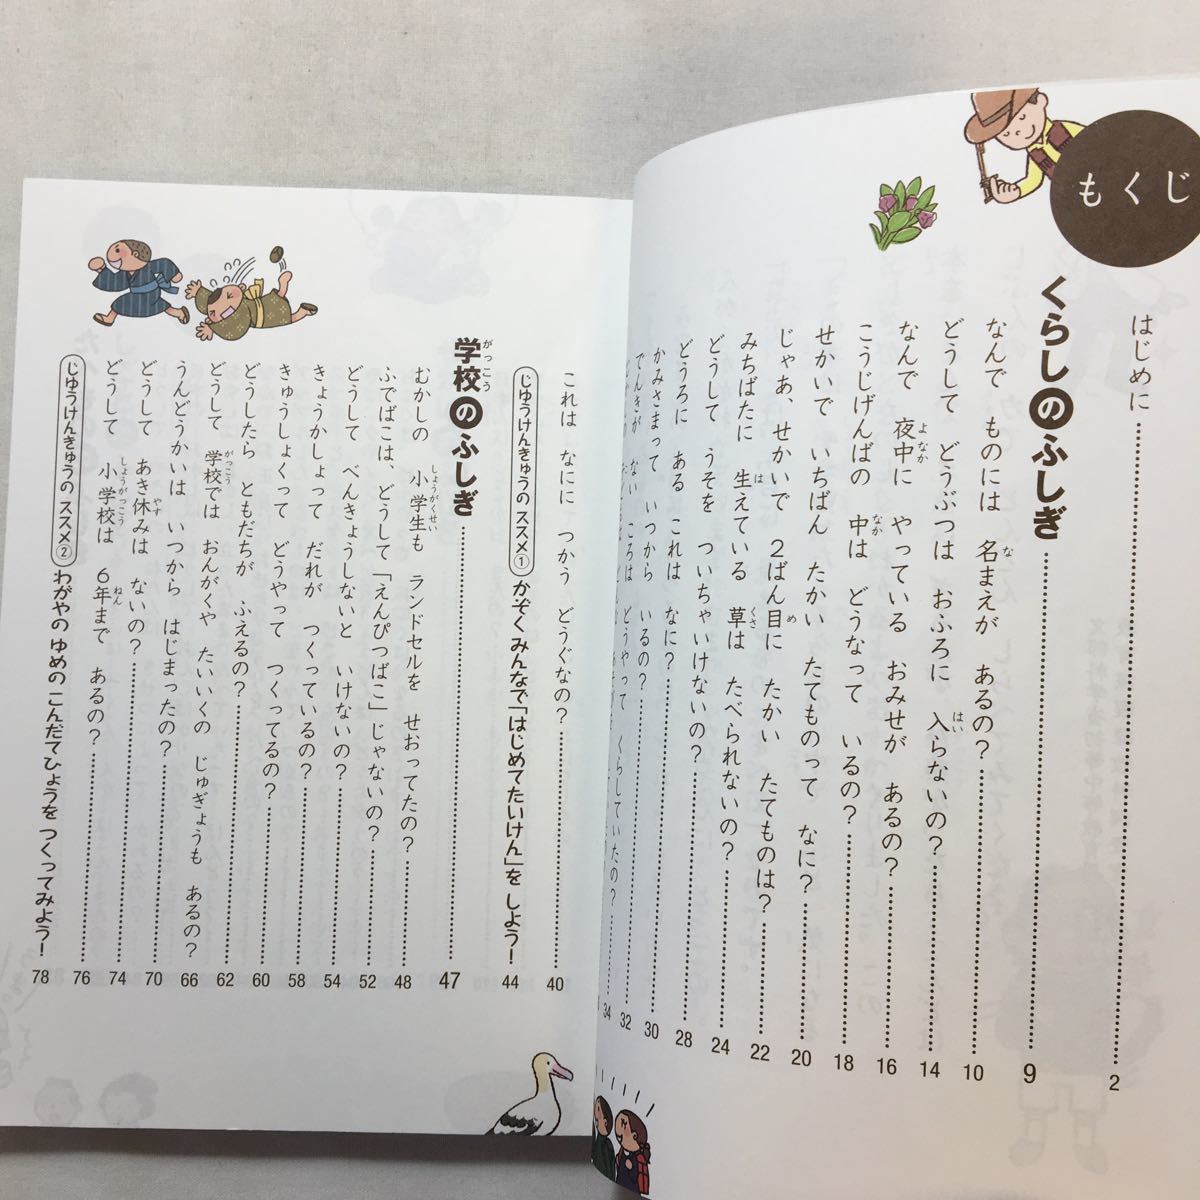 もくじ
はじめに 2
くらしのふしぎ 9
なんで ものには 名まえが あるの? 10
どうして どうぶつは おふろに 入らないの? 14
なんで 夜中に やっている おみせが あるの? 16
こうじげんばの 中は どうなって いるの? 18
せかいで いちばん たかい たてものって なに? 20
じゃあ、せかいで 2ばん目に たかい たてものは? 22
みちばたに 生えている 草は たべられないの? 24
どうして うそを ついちゃいけないの? 28
どうろに ある これは なに? 30
かみさまって いつから いるの? 32
でんきが ない ころは どうやって くらしていたの? 34
これは なにに つかう どうぐなの? 40
じゆうけんきゅうの ススメ① かぞくみんなで「はじめてたいけん」を しよう! 44
学校のふしぎ 47
むかしの 小学生も ランドセルを せおってたの? 48
ふでばこは、どうして「えんぴつばこ」じゃないの? 52
どうして べんきょうしないと いけないの? 54
きょうかしょって だれが つくっているの? 58
きゅうしょくって どうやって つくってるの? 60
どうしたら ともだちが ふえるの? 62
どうして 学校では おんがくや たいいくの じゅぎょうも あるの? 66
うんどうかいは いつから はじまったの? 70
どうして あき休みは ないの? 74
どうして 小学校は 6年まで あるの? 76
じゆうけんきゅうの ススメ② わがやの ゆめの こんだてひょうを つくってみよう! 78